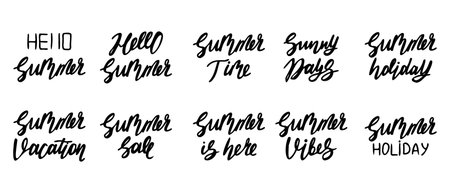 HEllO
Summer
Hello
Summer
Summer
Time
Sunny
Days
Summer
holiday
Summer
Vacation
Summer
sale
Summer
is here
Summer
Vibes
Summer
HOLiDAY